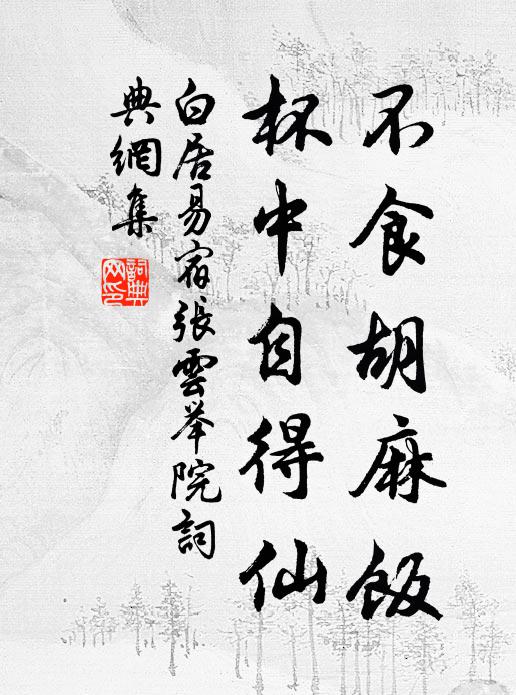 不食胡麻飯
杯中自得仙
白居易宿張雲举院詞
典網集
詞典网印